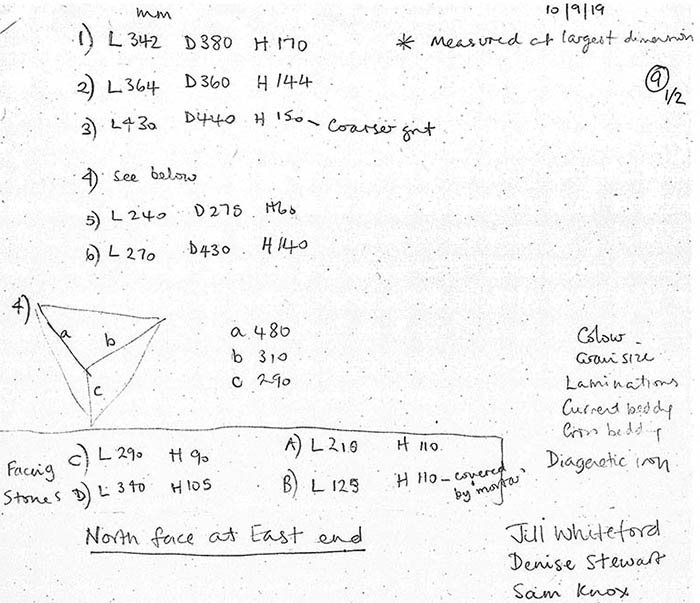 mm
10/9/19
1) L342 D380 H170
* Measured at largest dimension
2) L364 D360 H144
9
1/2
3) L430 D440 H 150 - coarser grit
4) see below
5) L240 D275 H60
6) L270 D430 H140
4)
a
b
c
a 480
b 310
c 290
Colour
Grain size
Laminations
Current beddg
Cross beddg
Diagenetic iron
Facing
Stones
C) L290 H90
D) L340 H105
A) L210 H110
B) L125 H110 - covered
by mortar
North face at East end
Jill Whiteford
Denise Stewart
Sam Knox